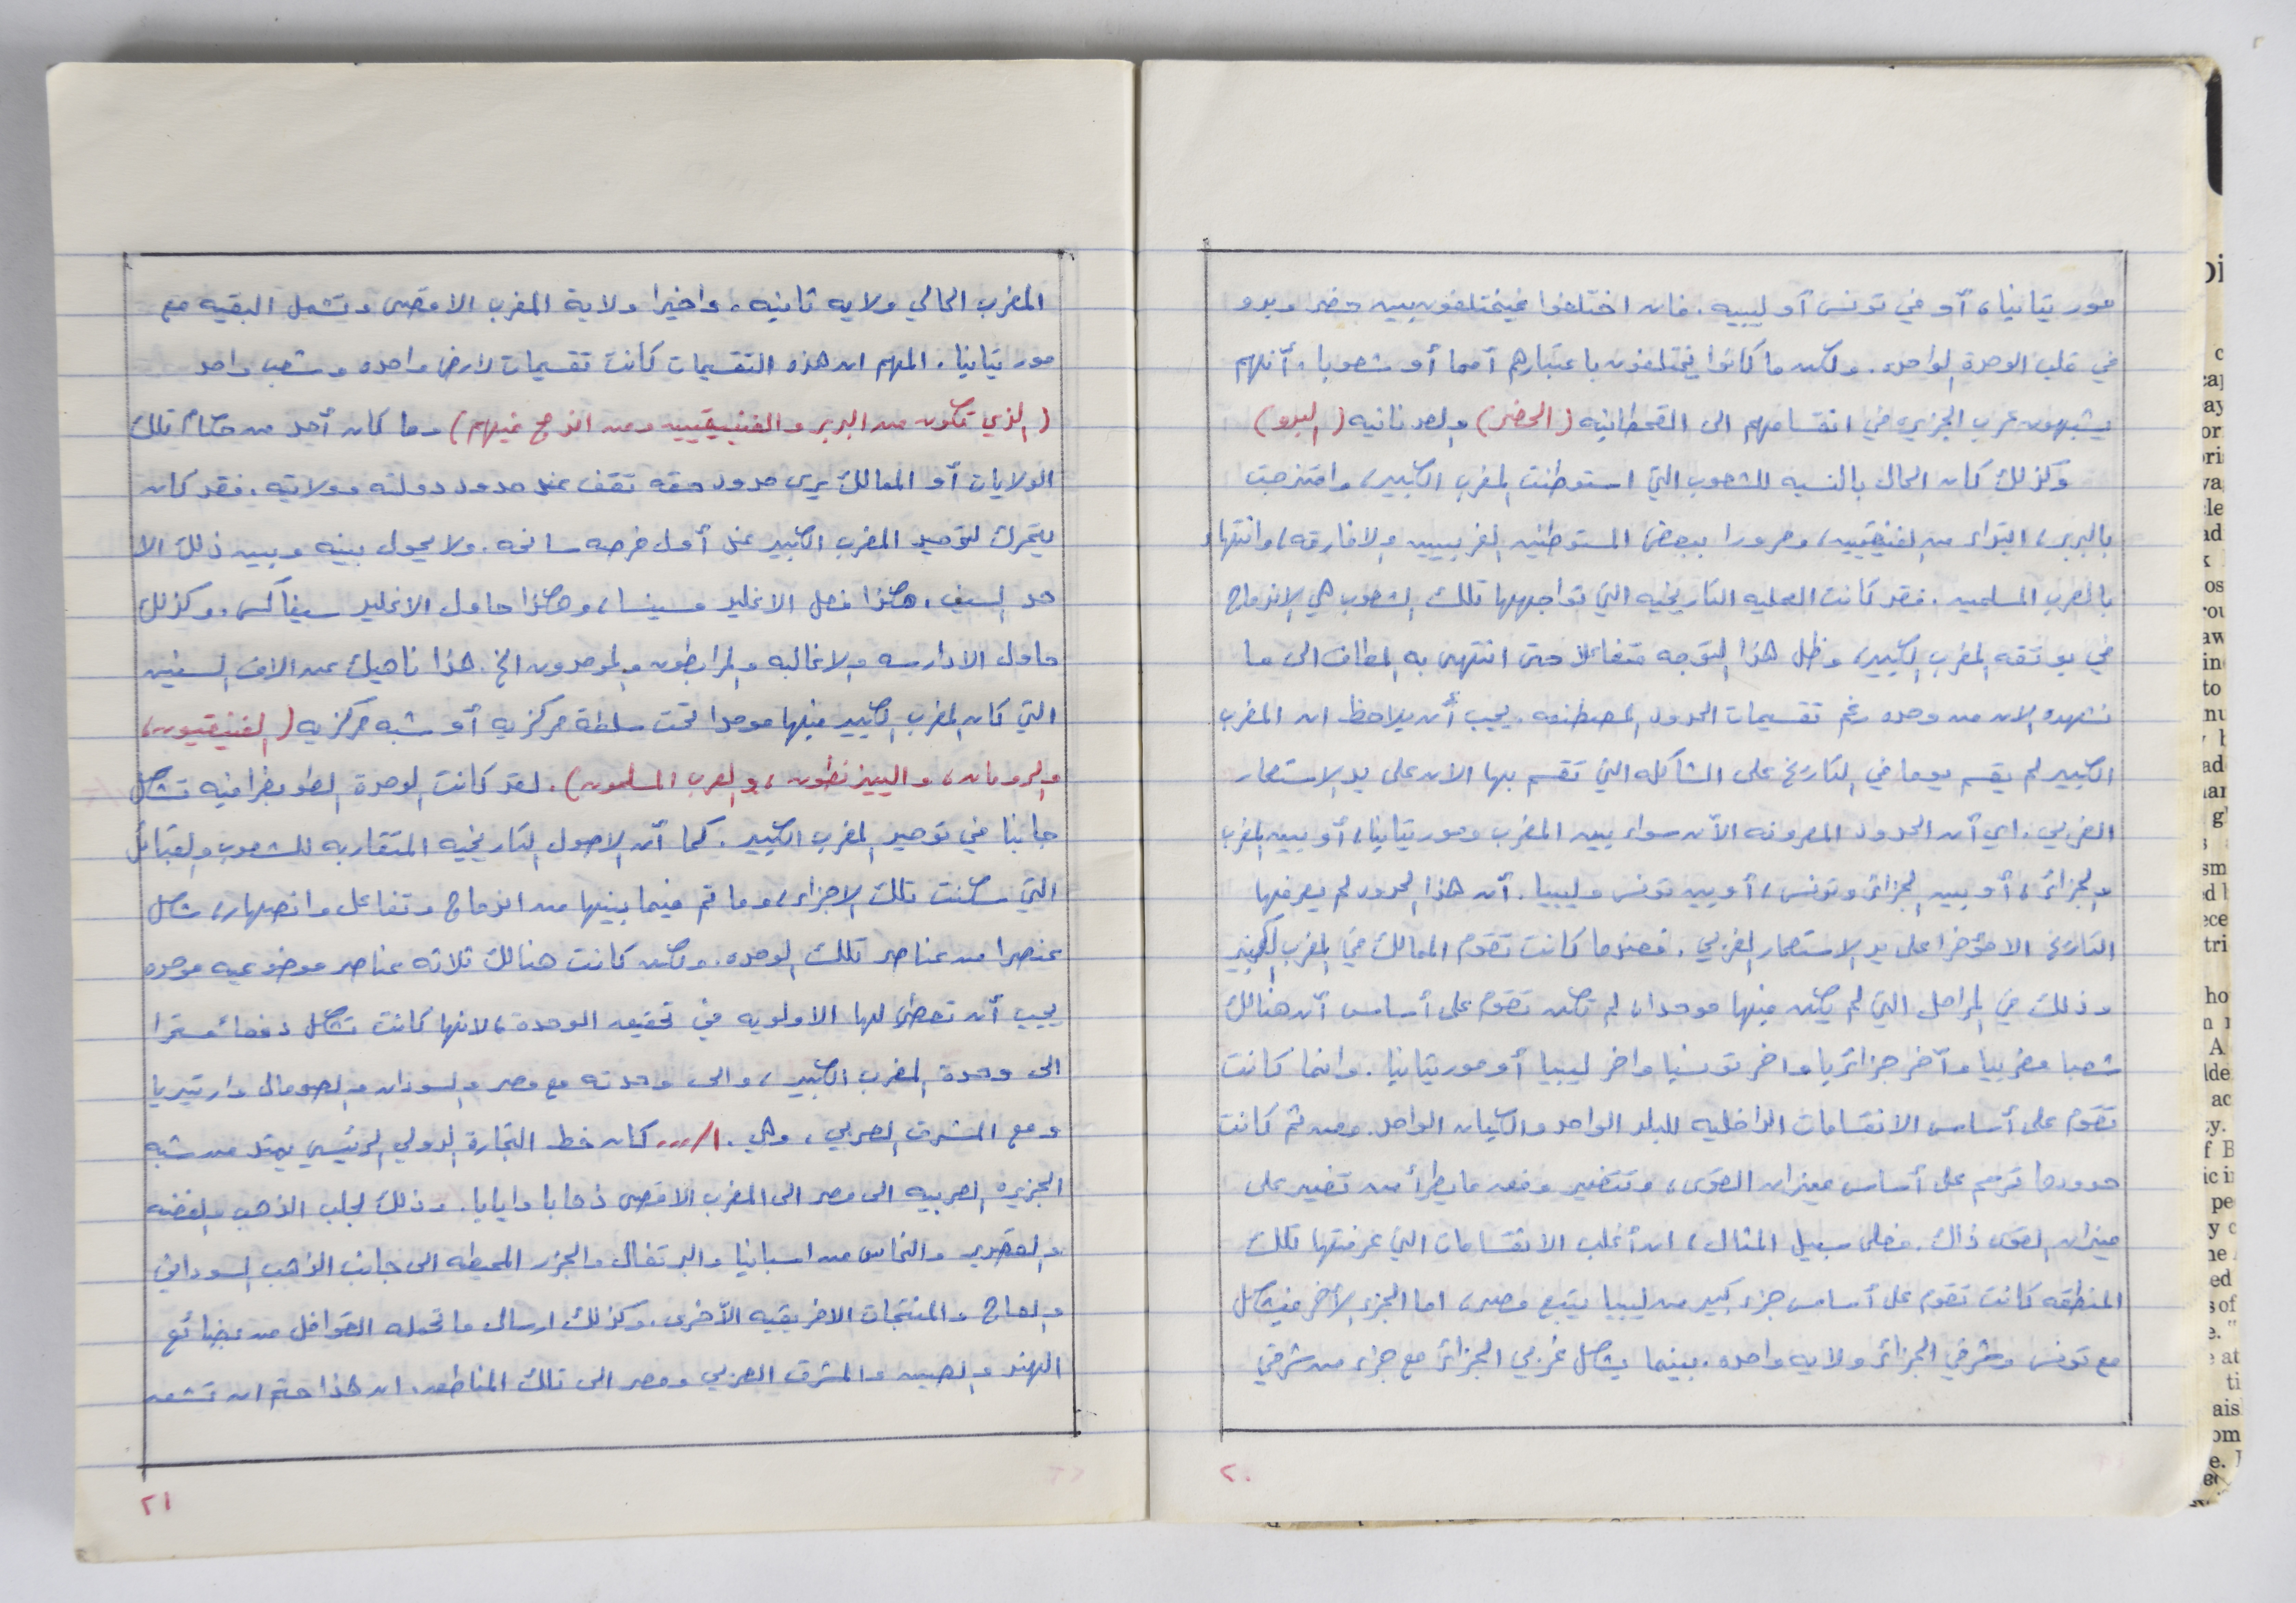 موريتانيا، أو في تونس أو ليبيه. فان اختلفوا فيختلفون بين حضر وبدو
في قلب الوحدة الواحده. ولكن ما كانوا يختلفون باعتبارهم أمما أو شعوبا، أنهم
يشبهون عرب الجزيره في انقسامهم الى القحطانيه (الحضر) والعدنانيه (البدو)
وكذلك كان الحال بالنسبه للشعوب التي استوطنت المغرب الكبير، وامتزجت
بالبربر، ابتداء من الفنيقيين، ومرورا ببعض المستوطنين الغربيين والافارقه، وانتهاء
بالعرب المسلمين. فقد كانت العمليه التاريخيه التي تواجهها تلك الشعوب هي الاندماج
في بوتقه المغرب الكبير، وظل هذا التوجه متفاعلا حتى انتهى به المطاف الى ما
نشهده الان من وحده رغم تقسيمات الحدود المصطنعه. يجب أن يلاحظ ان المغرب
الكبير لم يقسم يوما في التاريخ على الشاكله التي تقسم بها الان على يد الاستعمار
الغربي. اي أن الحدود المعروفه الآن سواء بين المغرب وموريتانيا، أو بين المغرب
والجزائر، أو بين الجزائر وتونس، أو بين تونس وليبيا. أن هذا الحدود لم يعرفها
التاريخ الا مؤخرا على يد الاستعمار الغربي. فعندما كانت تقوم الممالك في المغرب الكبير
وذلك في المراحل التي لم يكن فيها موحدا، لم تكن تقوم على أساس أن هنالك
شعبا مغربيا وآخر جزائريا واخر تونسيا واخر ليبيا أو موريتانيا. وانما كانت
تقوم على أساس الانقسامات الداخليه للبلد الواحد والكيان الواحد. ومن ثم كانت
حدودها ترسم على أساس ميزان القوى، وتتغير وفق ما يطرأ من تغيير على
ميزان القوى ذاك. فعلى سبيل المثال، ان أغلب الانقسامات التي عرفتها تلك
المنطقه كانت تقوم على أساس جزء كبير من ليبيا يتبع مصر، اما الجزء الأخر فيشكل
مع تونس وشرقي الجزائر ولايه واحده. بينما يشكل غربي الجزائر مع جزء من شرقي
٢٠
المغرب الحالي ولايه ثانيه، واخيرا ولاية المغرب الاقصى وتشمل البقيه مع
موريتانيا. المهم ان هذه التقسيمات كانت تقسيمات لارض واحده وشعب واحد
(الذي تكون من البربر والفنيقيين ومن اندمج فيهم) وما كان أحد من حكام تلك
الولايات أو الممالك يرى حدود حقه تقف عند حدود دولته وولايته. فقد كان
يتحرك لتوحيد المغرب الكبير عند أول فرصه سانحه. ولا يحول بينه وبين ذلك الا
حد السيف، هكذا فعل الاغليد مسينسا، وهكذا حاول الاغليد سيفاكس. وكذلك
حاول الادارسه والاغالبه والمرابطون والموحدون الخ. هذا ناهيك عن الاف السنين
التي كان المغرب الكبير فيها موحدا تحت سلطة مركزيه أو شبه مركزيه (الفنيقيون،
والرومان، والبيزنطون، والعرب المسلمون). لقد كانت الوحدة الطوبغرافيه تشكل
جانبا في توحيد المغرب الكبير. كما أن الاصول التاريخيه المتقاربه للشعوب والقبائل
التي سكنت تلك الاجزاء، وما تم فيما بينها من اندماج وتفاعل وانصهار، شكل
عنصرا من عناصر تلك الوحده. ولكن كانت هنالك ثلاثه عناصر موضوعيه موحده
يجب أن تعطى لها الاولويه في تحقيق الوحدة، لانها كانت تشكل دفعا مستمرا
الى وحدة المغرب الكبير، والى وحدته مع مصر والسودان والصومال وارتيريا
ومع المشرق العربي، وهي. ١/... كان خط التجارة الدولي الرئيسي يمتد من شبه
الجزيره العربيه الى مصر الى المغرب الاقصى ذهابا وايابا. وذلك لجلب الذهب والفضه
والقصدير والنحاس من اسبانيا والبرتغال والجزر المحيطه الى جانب الذهب السوداني
والعاج والمنتجات الافريقيه الأخرى. وكذلك ارسال ما تحمله القوافل من بضائع
الهند والصين والمشرق العربي ومصر الى تلك المناطق. ان هذا حتم ان تشق
٢١